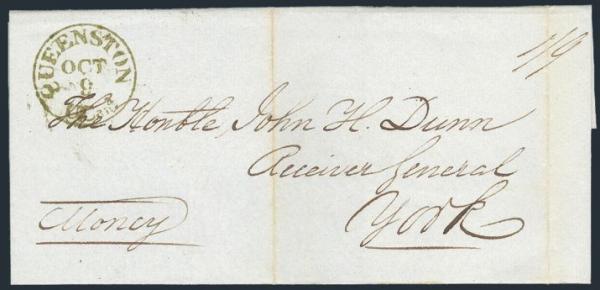 QUEENSTON
OCT
9
1/9
The Honble, John H. Dunn
Receiver General
York
Money